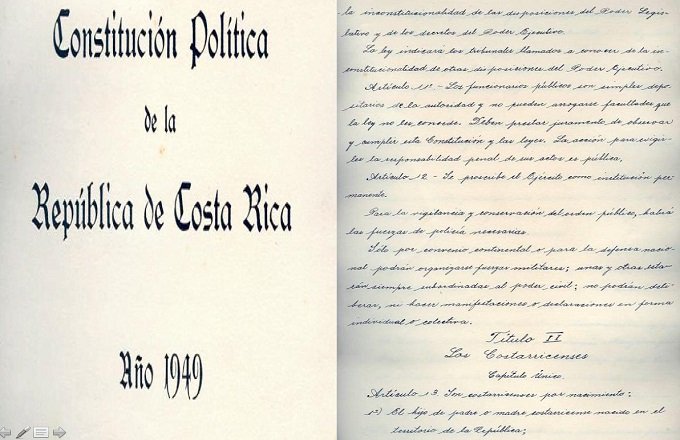 Constitución Política
de la
República de Costa Rica
Año 1949
la inconstitucionalidad de las disposiciones del Poder Legis-
lativo y de los decretos del Poder Ejecutivo.
La ley indicará los tribunales llamados a conocer de la in-
constitucionalidad de otras disposiciones del Poder Ejecutivo.
Artículo 11º - Los funcionarios públicos son simples depo-
sitarios de la autoridad y no pueden arrogarse facultades que
la ley no les concede. Deben prestar juramento de observar
y cumplir esta Constitución y las leyes. La acción para exigir-
les la responsabilidad penal de sus actos es pública.
Artículo 12 - Se proscribe el Ejército como institución per-
manente.
Para la vigilancia y conservación del orden público, habrá
las fuerzas de policía necesarias.
Sólo por convenio continental o para la defensa nacio-
nal podrán organizarse fuerzas militares; unas y otras esta-
rán siempre subordinadas al poder civil; no podrán deli-
berar, ni hacer manifestaciones o declaraciones en forma
individual o colectiva.
Título II
Los Costarricenses
Capítulo Único
Artículo 13 Son costarricenses por nacimiento:
1º) El hijo de padre o madre costarricense nacido en el
territorio de la República;